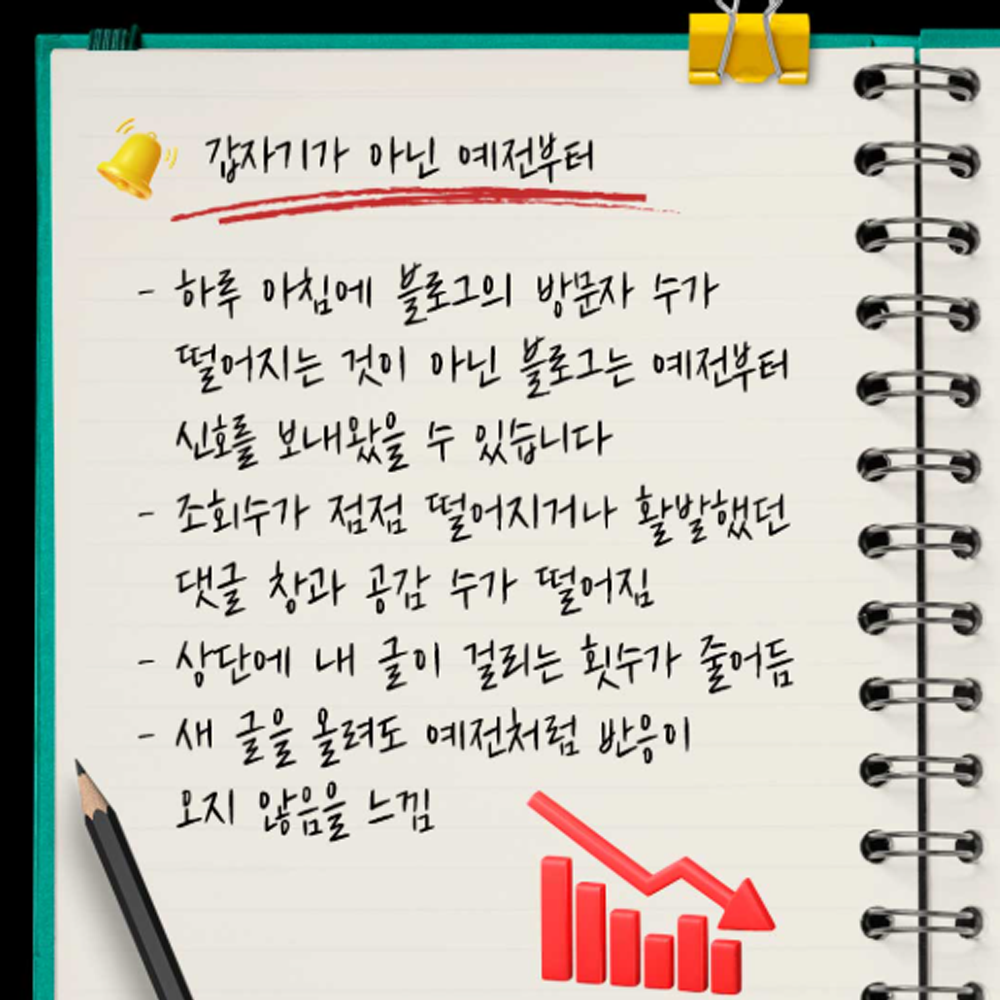 갑자기가 아닌 예전부터
- 하루 아침에 블로그의 방문자 수가
떨어지는 것이 아닌 블로그는 예전부터
신호를 보내왔을 수 있습니다
- 조회수가 점점 떨어지거나 활발했던
댓글 창과 공감 수가 떨어짐
- 상단에 내 글이 걸리는 횟수가 줄어듬
- 새 글을 올려도 예전처럼 반응이
오지 않음을 느낌